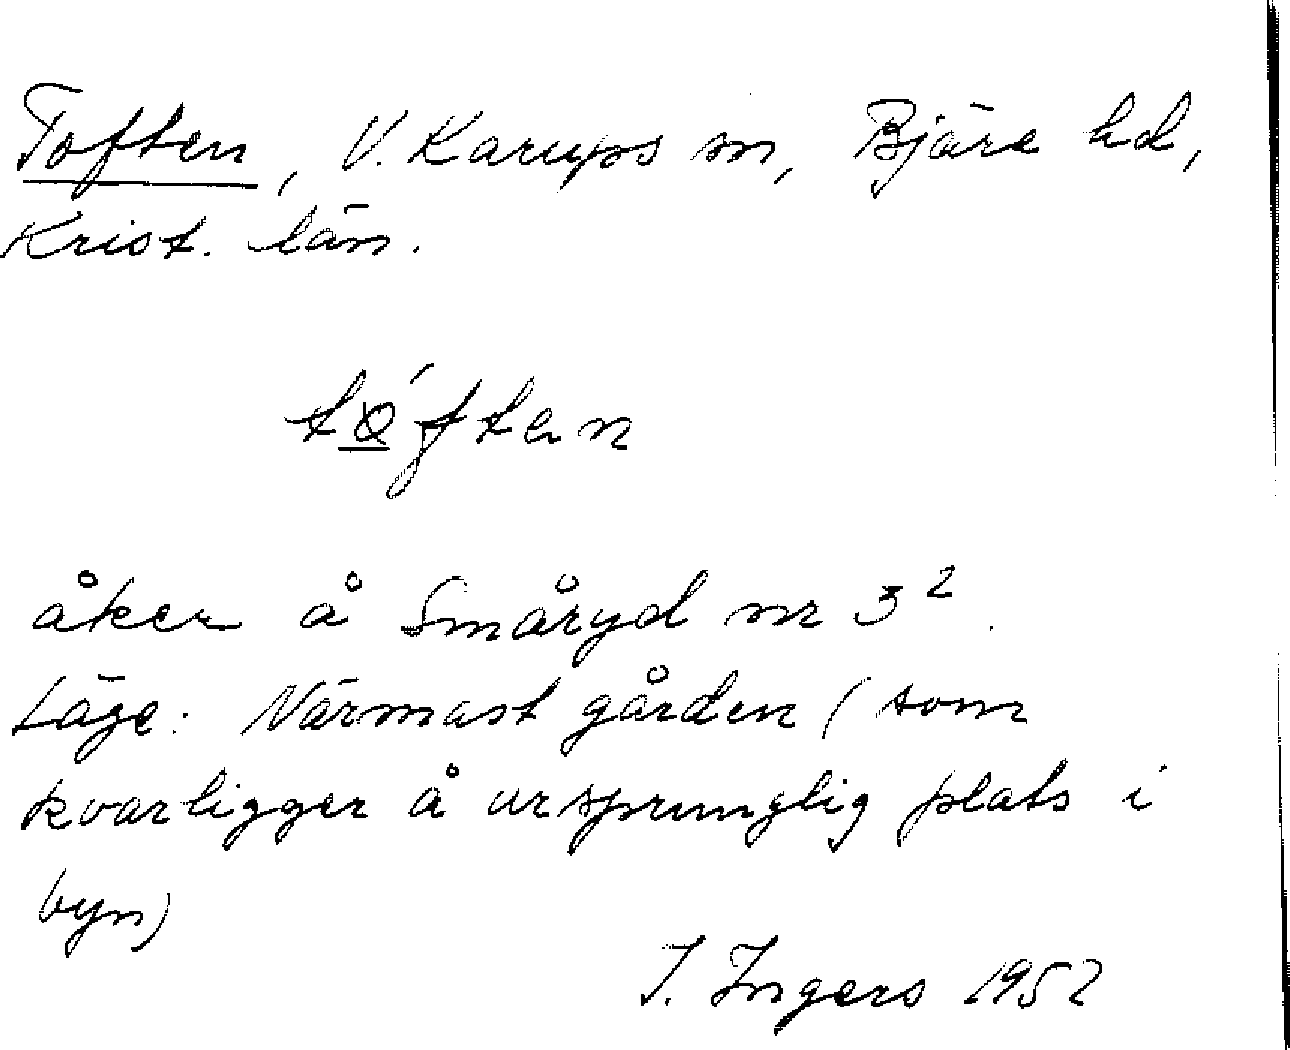 Toften, V. Karups sn, Bjäre hd,
Krist. län.
tǿften
åker å Småryd nr 3²
Läge: Närmast gården (som
kvarligger å ursprunglig plats i
byn)
I. Ingers 1952